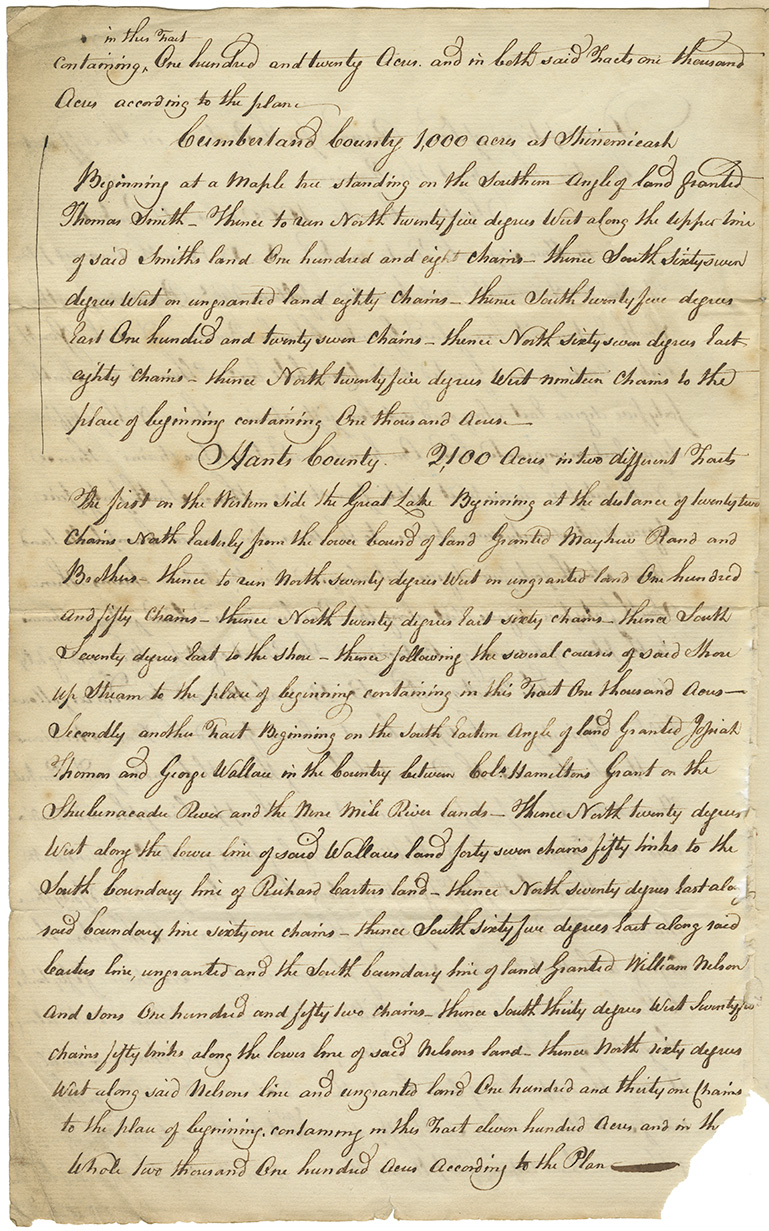 in this Tract
Containing, One hundred and twenty Acres. and in both said Tracts one thousand
Acres according to the plan
Cumberland County 1,000 acres at Shinemicash
Beginning at a Maple tree standing on the Southern Angle of land granted
Thomas Smith – Thence to run North twenty five degrees West along the upper line
of said Smiths land One hundred and eight chains – thence South sixty seven
degrees West on ungranted land eighty Chains – thence South twenty five degrees
East One hundred and twenty seven chains – thence North sixty seven degrees East
eighty Chains – thence North twenty five degrees West nineteen Chains to the
place of beginning containing One thousand Acres
Hants County. 2,100 Acres in two different Tracts
The first on the Western side the Great Lake Beginning at the distance of twenty two
Chains North Easterly from the lower bound of land Granted Mayhew Rand and
Brothers – thence to run North seventy degrees West on ungranted land One hundred
and fifty Chains – thence North twenty degrees East sixty chains – thence South
Seventy degrees East to the shore – thence following the several courses of said Shore
up Stream to the place of beginning containing in this Tract One thousand Acres –
Secondly another Tract Beginning on the South Eastern Angle of land Granted Josiah
Thomas and George Wallace in the Country between Colo. Hamiltons Grant on the
Shubenacadie River and the Nine Mile River lands – Thence North twenty degrees
West along the lower line of said Wallaces land forty seven chains fifty links to the
South boundary line of Richard Carters land – thence North seventy degrees East
said boundary line sixty one chains – thence South sixty five degrees East along said
Carters line, ungranted and the South boundary line of land Granted William Nelson
and sons One hundred and fifty two chains – thence South thirty degrees West
chains fifty links along the lower line of said Nelsons land – thence North sixty degrees
West along said Nelsons line and ungranted land One hundred and thirty one Chains
to the place of beginning. containing in this Tract eleven hundred Acres and in
Whole two thousand One hundred Acres According to the Plan